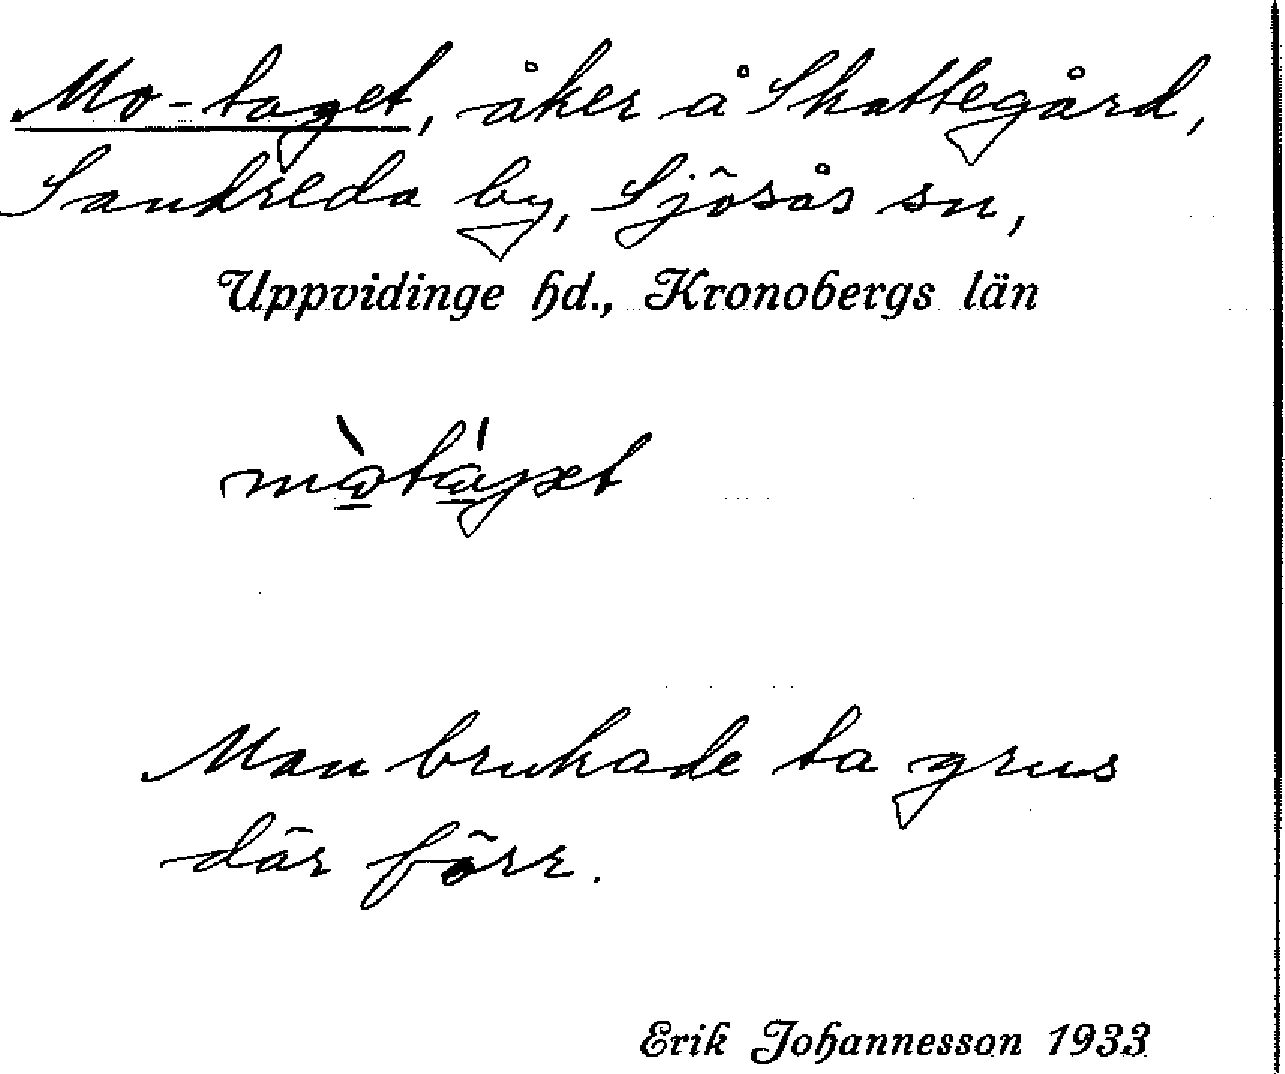 Mo-taget, åker å Skattegård,
Sandreda by, Sjösås sn,
Uppvidinge hd., Kronobergs län
Man brukade ta grus
där förr.
Erik Johannesson 1933